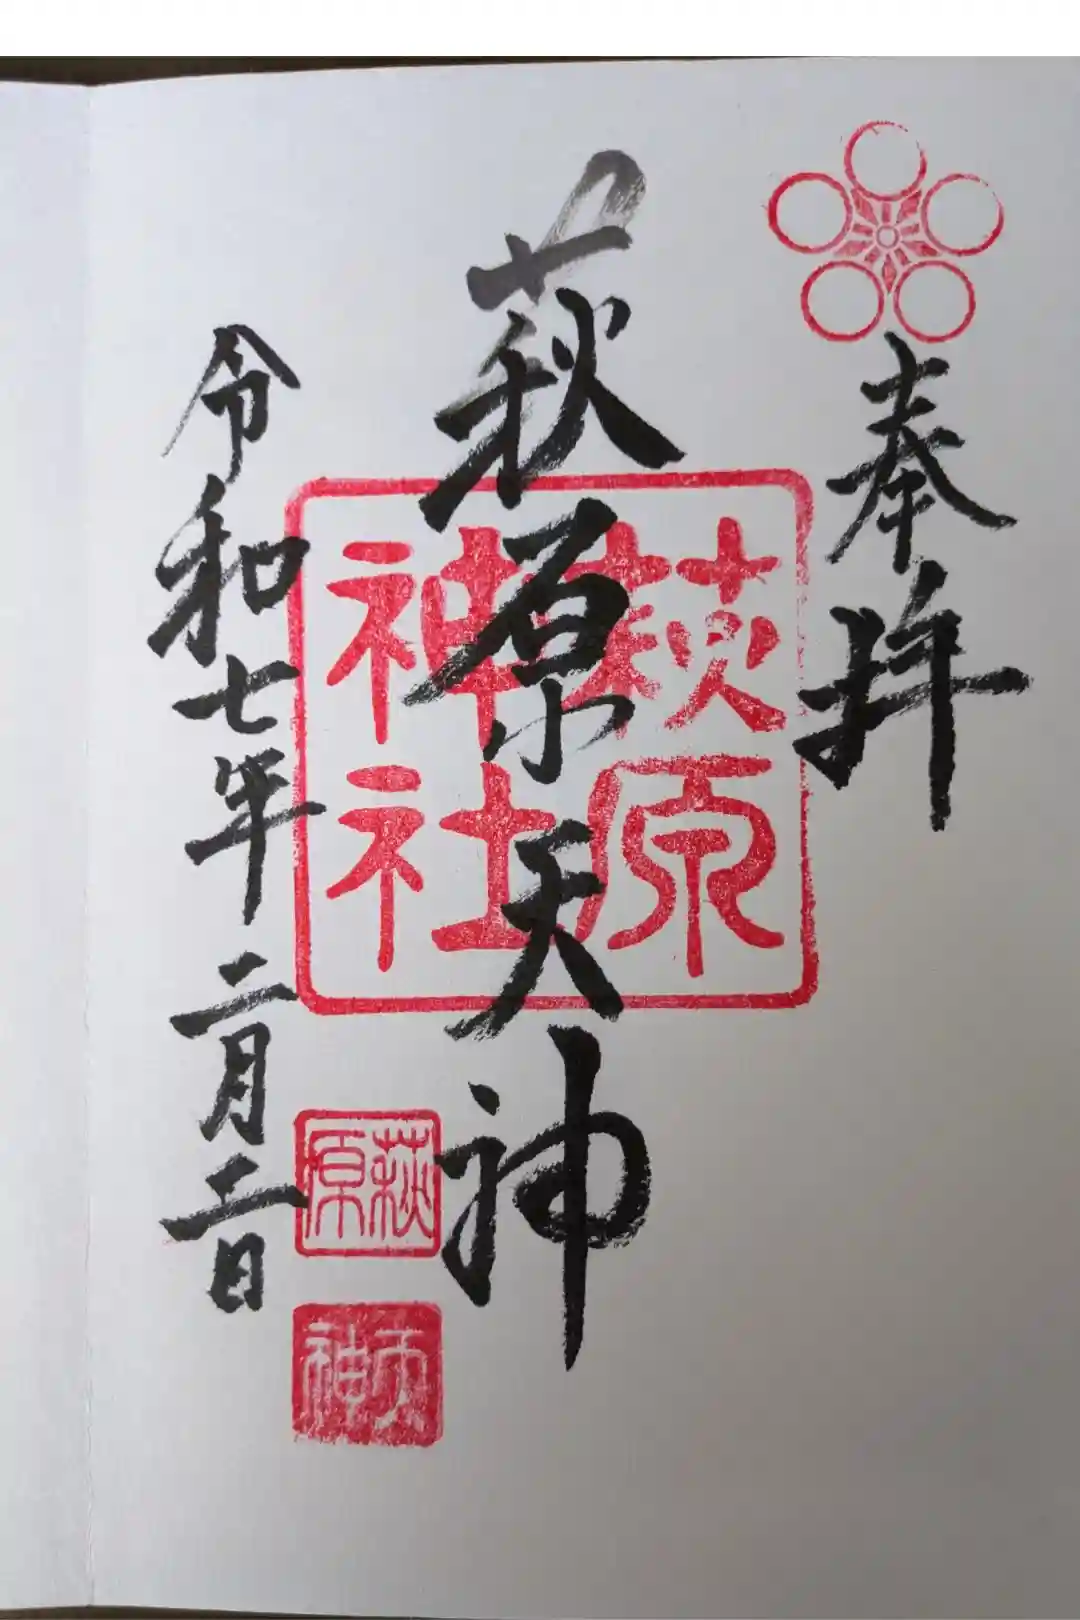 奉拝
萩原天神
萩原神社
令和七年二月二日
萩原
天神